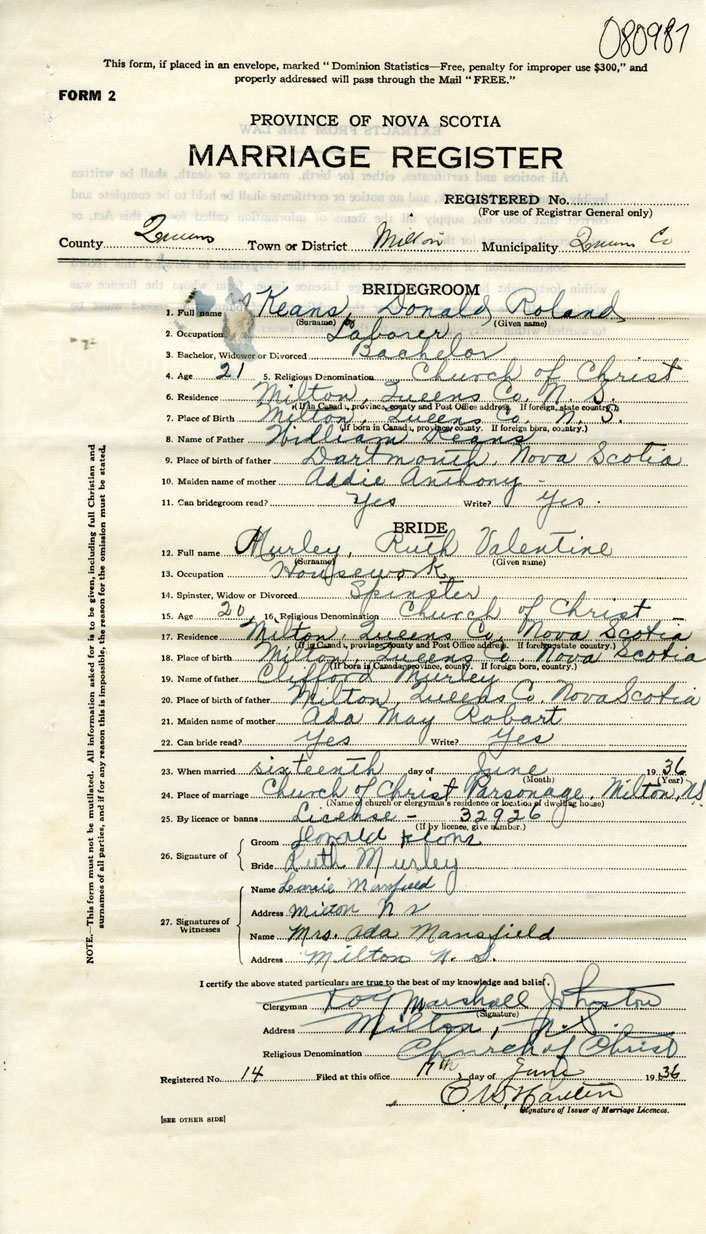 080987
This form, if placed in an envelope, marked "Dominion Statistics—Free, penalty for improper use $300," and
properly addressed will pass through the Mail "FREE."
FORM 2
PROVINCE OF NOVA SCOTIA
MARRIAGE REGISTER
REGISTERED No.
(For use of Registrar General only)
County Queens Town or District Milton Municipality Queens Co
BRIDEGROOM
1. Full name Keans, Donald Roland
(Surname) (Given name)
2. Occupation Laborer
3. Bachelor, Widower or Divorced Bachelor
4. Age 21 5. Religious Denomination Church of Christ
6. Residence Milton, Queens Co. N. S.
(If in Canada, province, county and Post Office address. If foreign, state country.)
7. Place of Birth Milton, Queens Co. N. S.
(If born in Canada, province, county. If foreign born, country.)
8. Name of Father William Keans
9. Place of birth of father Dartmouth, Nova Scotia
10. Maiden name of mother Addie Anthony -
11. Can bridegroom read? Yes Write? Yes.
BRIDE
12. Full name Murley, Ruth Valentine
(Surname) (Given name)
13. Occupation Housework
14. Spinster, Widow or Divorced Spinster
15. Age 20 16. Religious Denomination Church of Christ -
17. Residence Milton, Queens Co. Nova Scotia
(If in Canada, province, county and Post Office address. If foreign state country.)
18. Place of birth Milton, Queens Co. Nova Scotia
(If born in Canada province, county. If foreign born, country.)
19. Name of father Clifford Murley
20. Place of birth of father Milton, Queens Co. Nova Scotia
21. Maiden name of mother Ada May Robart
22. Can bride read? Yes Write? Yes
23. When married sixteenth day of June 1936
(Month) (Year)
24. Place of marriage Church of Christ Parsonage, Milton, N.S.
(Name of church or clergyman's residence or location of dwelling house)
25. By licence or banns License - 32926
(If by licence, give number.)
26. Signature of
Groom Donald
Bride Ruth Murley
27. Signatures of Witnesses
Name Mansfield
Address Milton N S
Name Mrs. Ada Mansfield
Address Milton N. S.
I certify the above stated particulars are true to the best of my knowledge and belief.
Clergyman Roy Marshall Johnston
(Signature)
Address Milton, N.S.
Religious Denomination Church of Christ
Registered No. 14 Filed at this office 17th day of June 1936
Signature of Issuer of Marriage Licences.
[SEE OTHER SIDE]
NOTE.—This form must not be mutilated. All information asked for is to be given, including full Christian and
surnames of all parties, and if for any reason this is impossible, the reason for the omission must be stated.